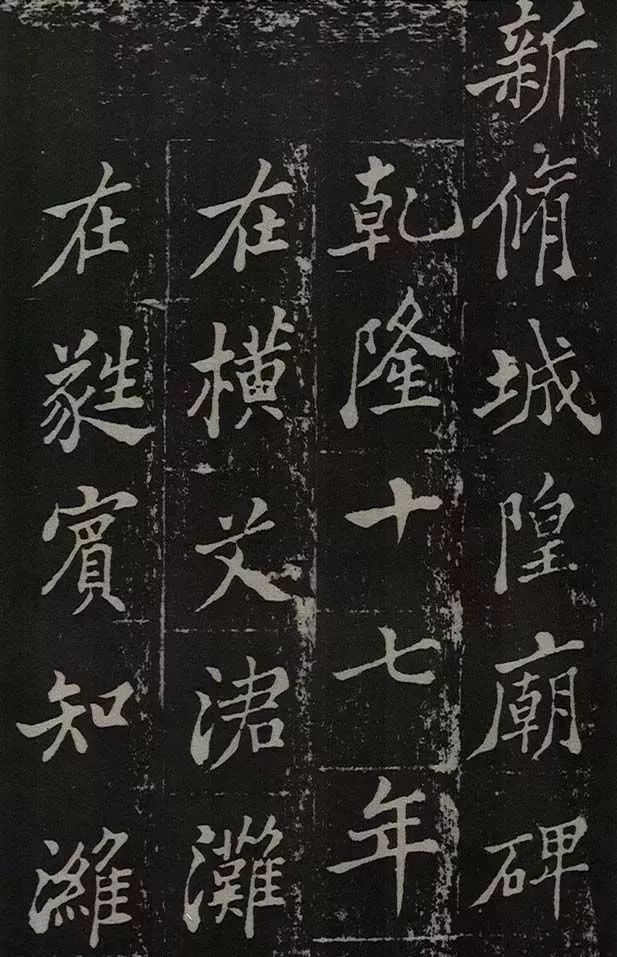 新脩城隍廟碑
乾隆十七年
在橫艾涒灘
在蕤賓知濰